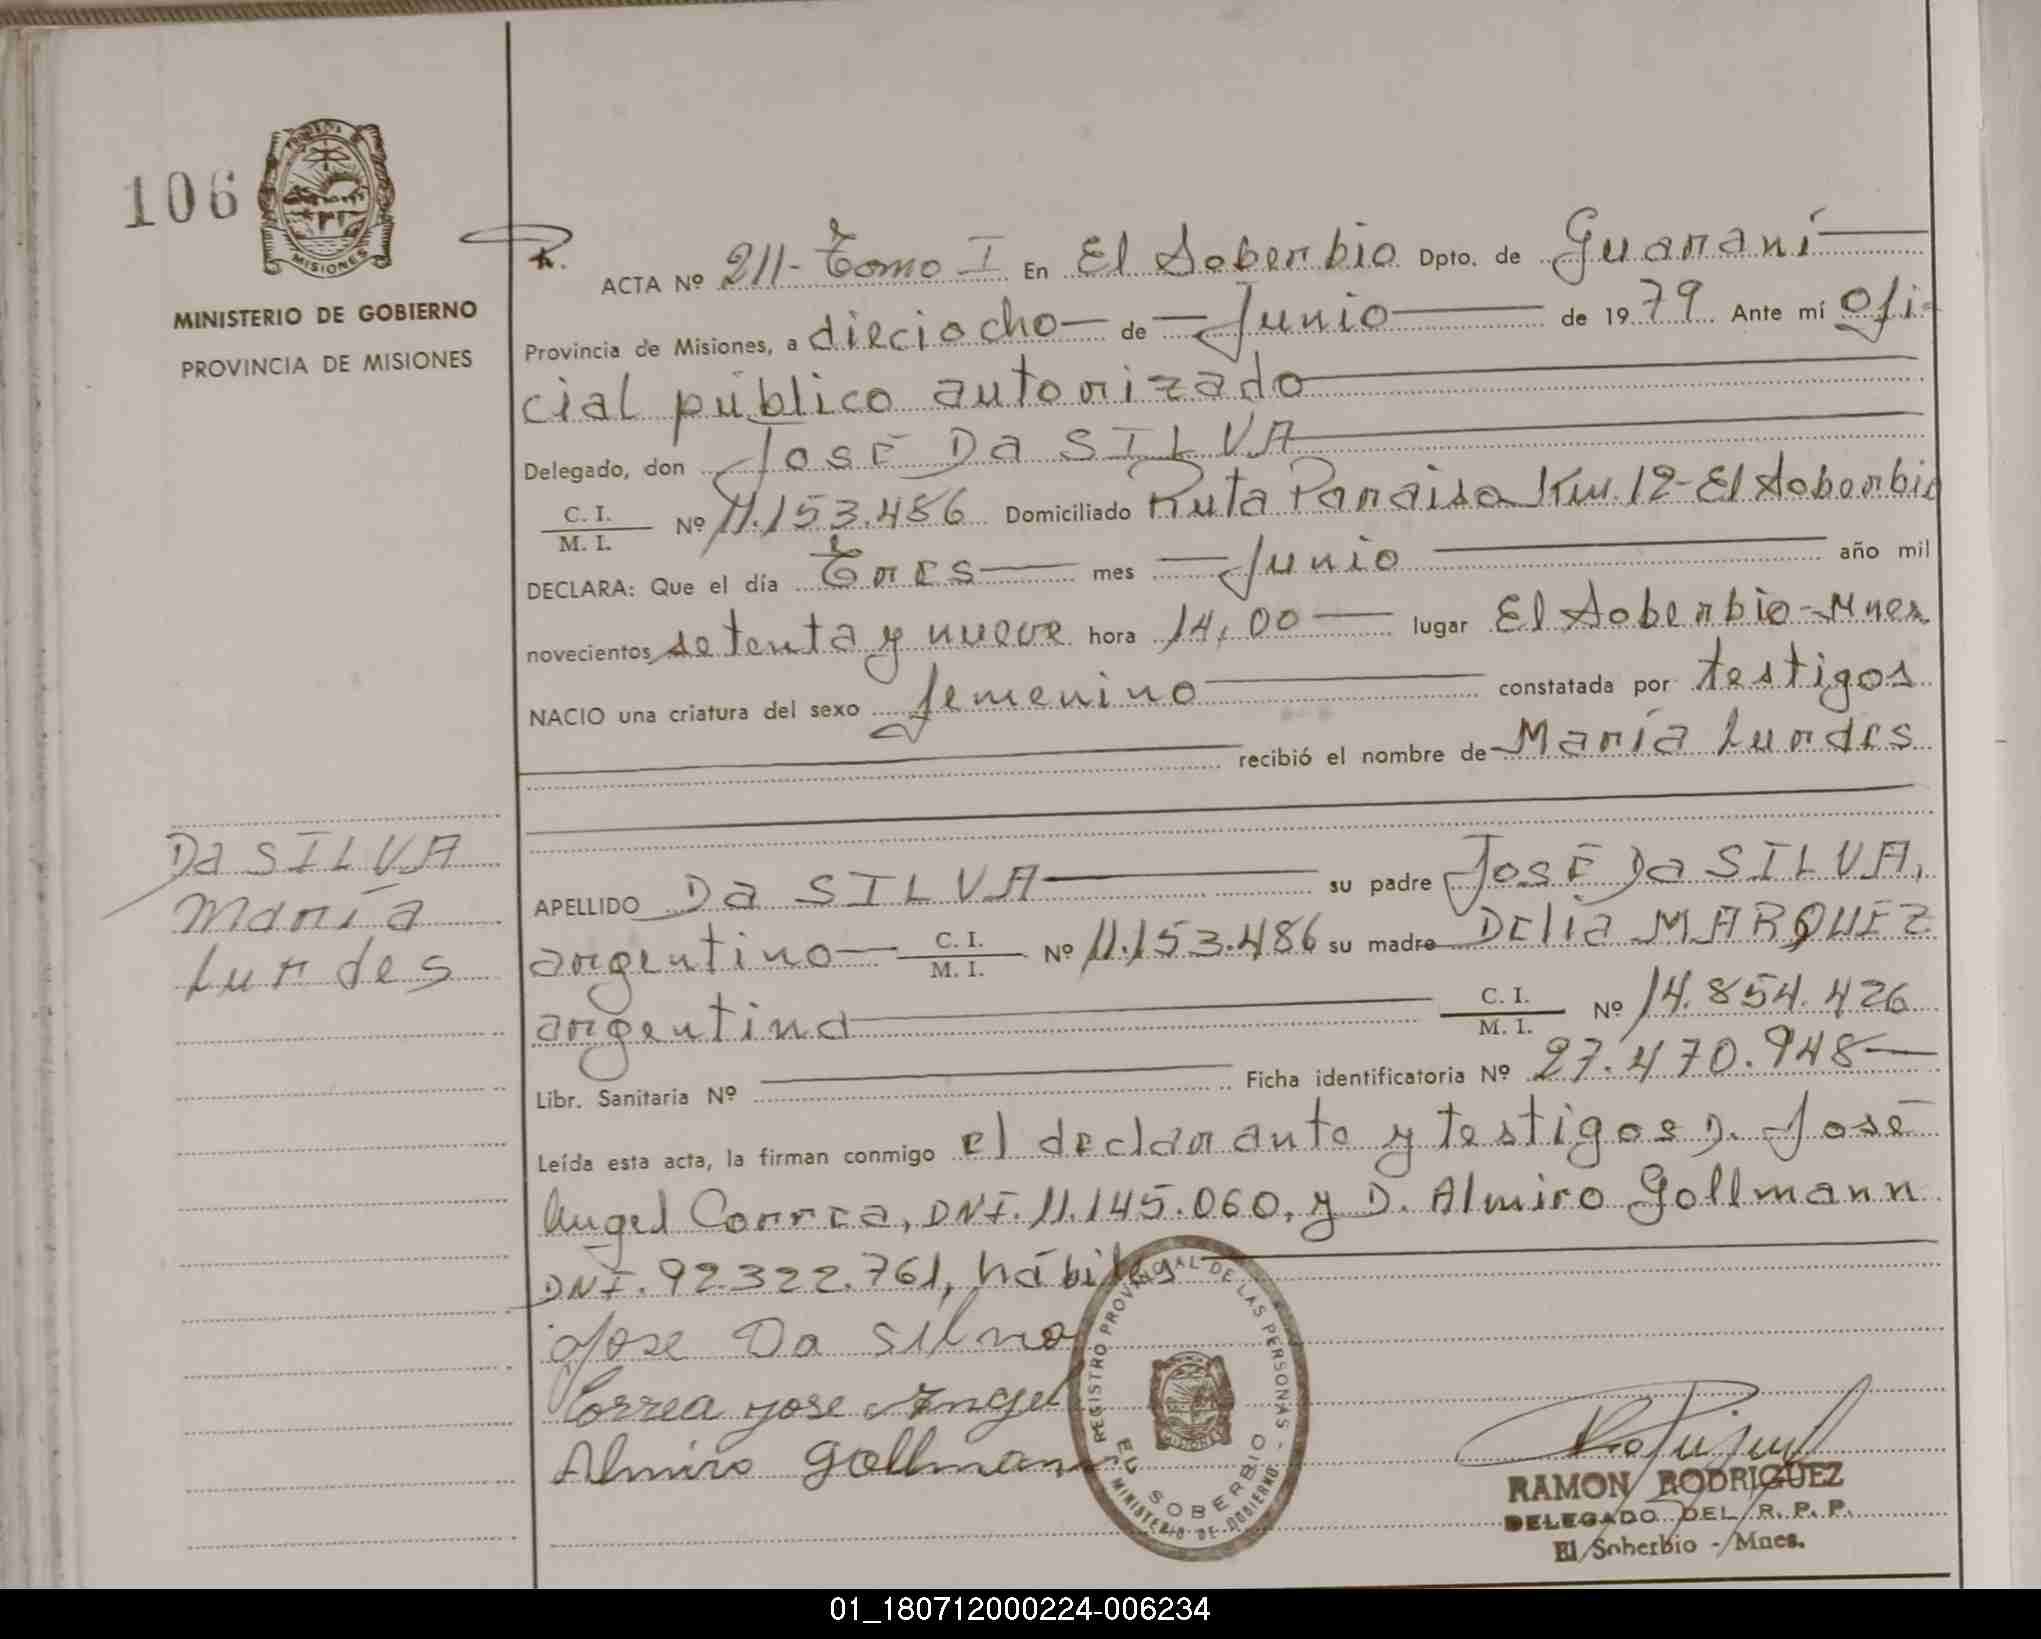 106
MISIONES
MINISTERIO DE GOBIERNO
PROVINCIA DE MISIONES
DA SILVA
María
Lurdes
ACTA Nº 211- Tomo I En El Soberbio Dpto. de Guaraní
Provincia de Misiones, a dieciocho de Junio de 1979 Ante mí Ofi-
cial público autorizado
Delegado, don JOSÉ DA SILVA
C. I.
M. I. Nº 11.153.486 Domiciliado Ruta Paraiso Km. 12- El Soberbio
DECLARA: Que el día Tres mes Junio año mil
novecientos setenta y nueve hora 14,00 lugar El Soberbio-Mnes
NACIO una criatura del sexo femenino constatada por testigos
recibió el nombre de María Lurdes
APELLIDO DA SILVA su padre JOSÉ DA SILVA,
argentino C. I.
M. I. Nº 11.153.486 su madre DELIA MARQUEZ
argentina C. I.
M. I. Nº 14.854.426
Libr. Sanitaria Nº Ficha identificatoria Nº 27.470.948
Leída esta acta, la firman conmigo el declarante y testigos D. José
Angel Correa, DNI. 11.145.060, y D. Almiro Gollmann
DNI. 92.322.761, hábiles
Jose Da Silva
Correa Jose Angel
Almiro Gollmann
REGISTRO PROVINCIAL DE LAS PERSONAS -
EL SOBERBIO
MINISTERIO DE GOBIERNO
RAMON RODRIGUEZ
DELEGADO DEL R. P. P.
El Soberbio - Mnes.
01_180712000224-006234